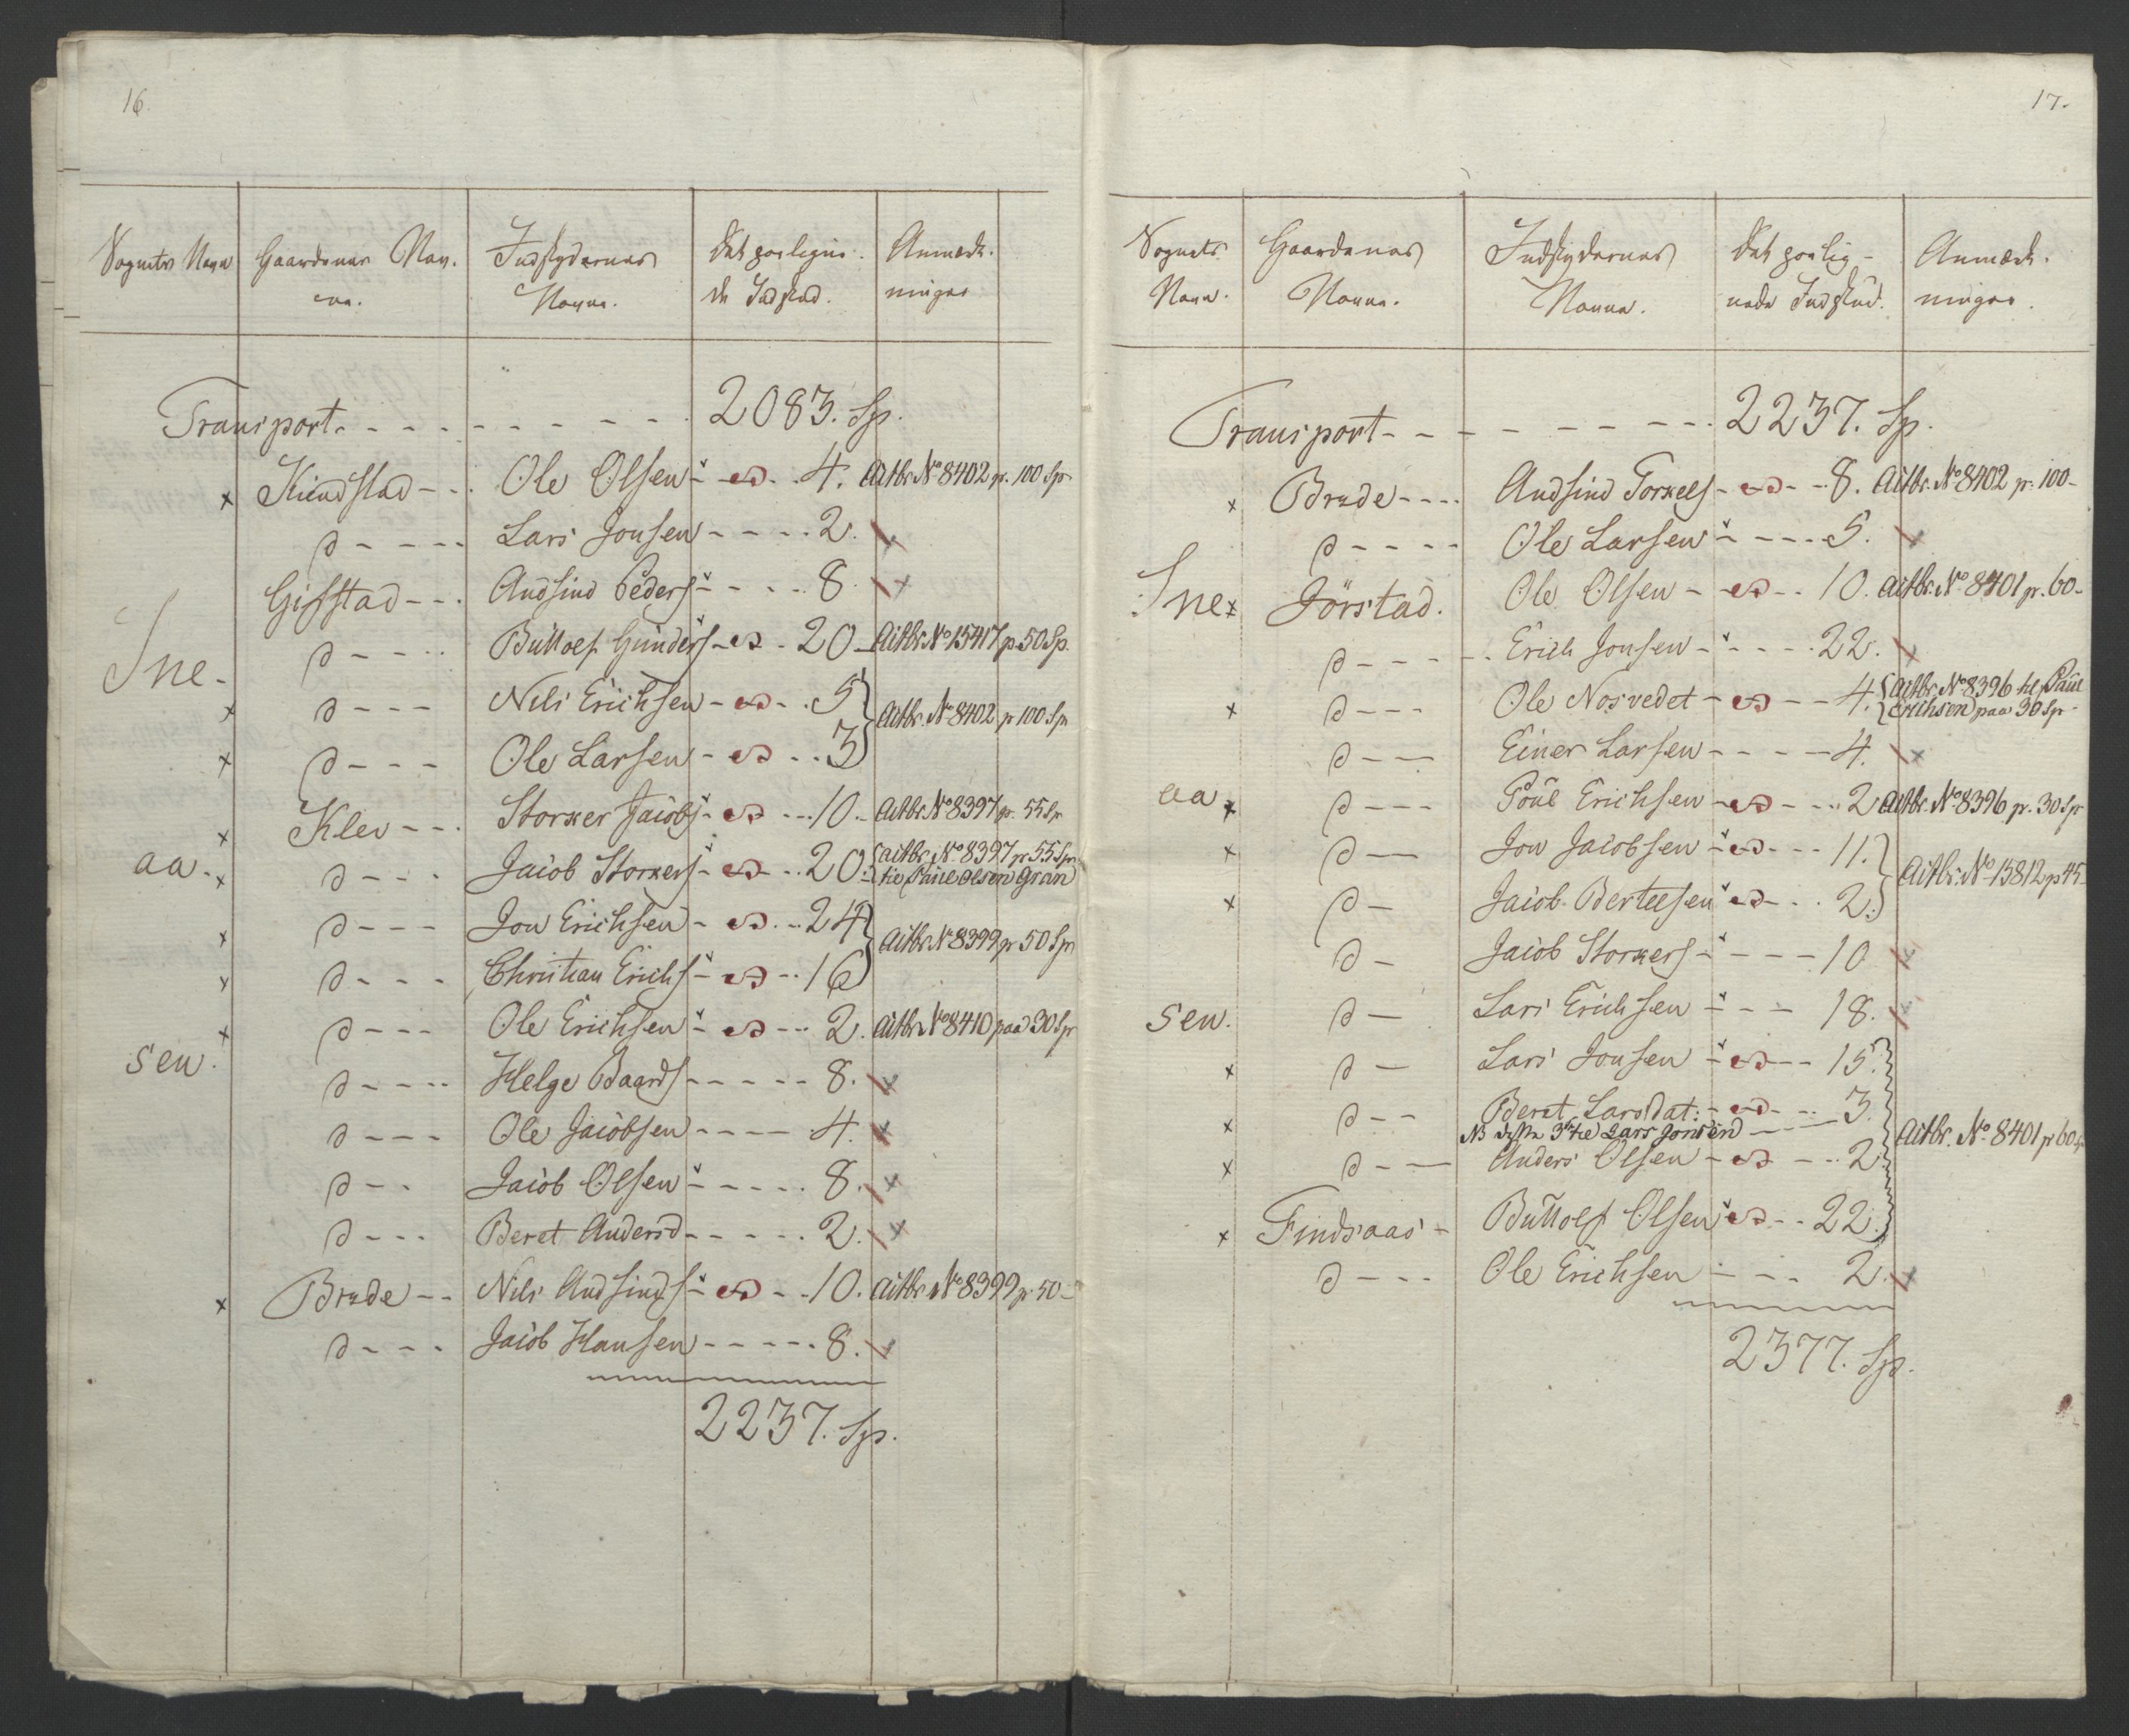 16.
Sognets Navn Gaardenes Nav- Indskydernes Det paaligne- Anmærk-
ne. Navne. de Indskud. ninger
Transport. - - - - - - - - 2083. Sp.
x Kindstad - - . Ole Olsen - - 4. Actbr. No 8402 pr. 100 Sp
d - - - - Lars Jonsen - - - - 2.
Gifstad - - . Andsind Peders - - - - 8.
d - - - . Buttolf Gunders - - 20 - Actbr. No 15417 p. 50 Sp.
Sne-
x d - - - Nils Erichsen - - . 5 } Actbr. No 8402 pr 100 Sp
x d - - - Ole Larsen - - . . 3
x Klev - - . Storker Jacobs - - - 10. - Actbr. No 8397 pr. 55 Sp
aa. x d - - - Jacob Storkers - - . . 20. - { actbr. No 8397 pr 55 Sp.
til Paul Olsen Gran
x d - - - Jon Erichsen - - . - 24 } Actbr No 8399 pr 50 Sp
x d - - - Christian Erichs - - - 16
x d - - - Ole Erichsen - - - 2. Actbr. No 8410 paa 30 Sp
sen.
d - - - - Helge Baards - - - - - 8.
d - - - Ole Jacobsen - - - - 4.
d - - . Jacob Olsen - - - - . 8.
d - - - Beret Andersd - - - - - 2.
x Brede - - Nils Andsinds - - - 10. Actbr No 8399 pr. 50 -
d - - - Jacob Hansen - - - - - 8.
2237. Sp.
17.
Sognets Gaardenes Indskydernes Det paalig- Anmærk-
Navn. Navne. Navne. nede Indskud. ninger.
Transport - - - - - - - - - 2237. Sp.
x Brede - - - - Andsind Torkels - - - 8. Actbr. No 8402 pr. 100 -
d - - - - Ole Larsen - - - - 5.
Sne x Jörstad. Ole Olsen - - - 10. Actbr. No 8401 pr. 60 -
d - - - - - Erich Jonsen - - - - - 22.
x d - - - Ole Nosvedet - - - 4. { Actbr. No 8396 til Paul
Erichsen paa 30 Sp -
d - - Einer Larsen - - - - 4.
aa x d - - - Poul Erichsen - - - - 2 Actbr. No 8396 pr. 30 Sp
x d - Jon Jacobsen - - - - 11. } Actbr. No 15812 p 45 -
x d - Jacob Bertelsen - - - 2.
d - Jacob Storkers - - - - 10
sen. d - Lars Erichsen - - - 18.
x d - Lars Jonsen - - - 15.
x d - - Beret Larsdat: - - - 3.
NB disse 3 til Lars Jonsen - - - Actbr. No 8401 pr 60 Sp
x d - - Anders Olsen - - - - 2.
x Findsaas - Buttolf Olsen - - 22.
d - - - Ole Erichsen - - - 2.
2377. Sp.